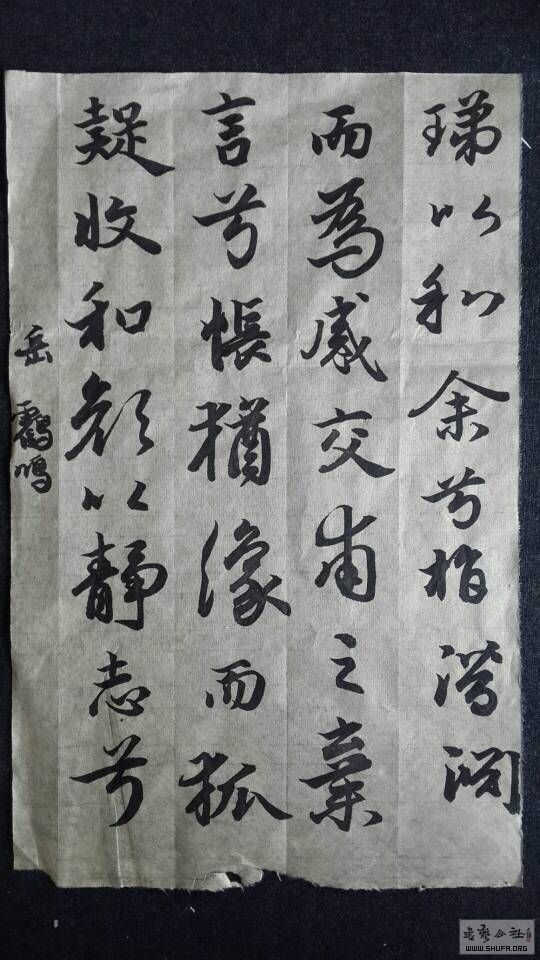 珶以和余兮指潛淵
而為感交甫之棄
言兮悵猶豫而狐
疑收和顏以靜志兮
岳鸖鳴
書藝公社
WWW.SHUFA.ORG